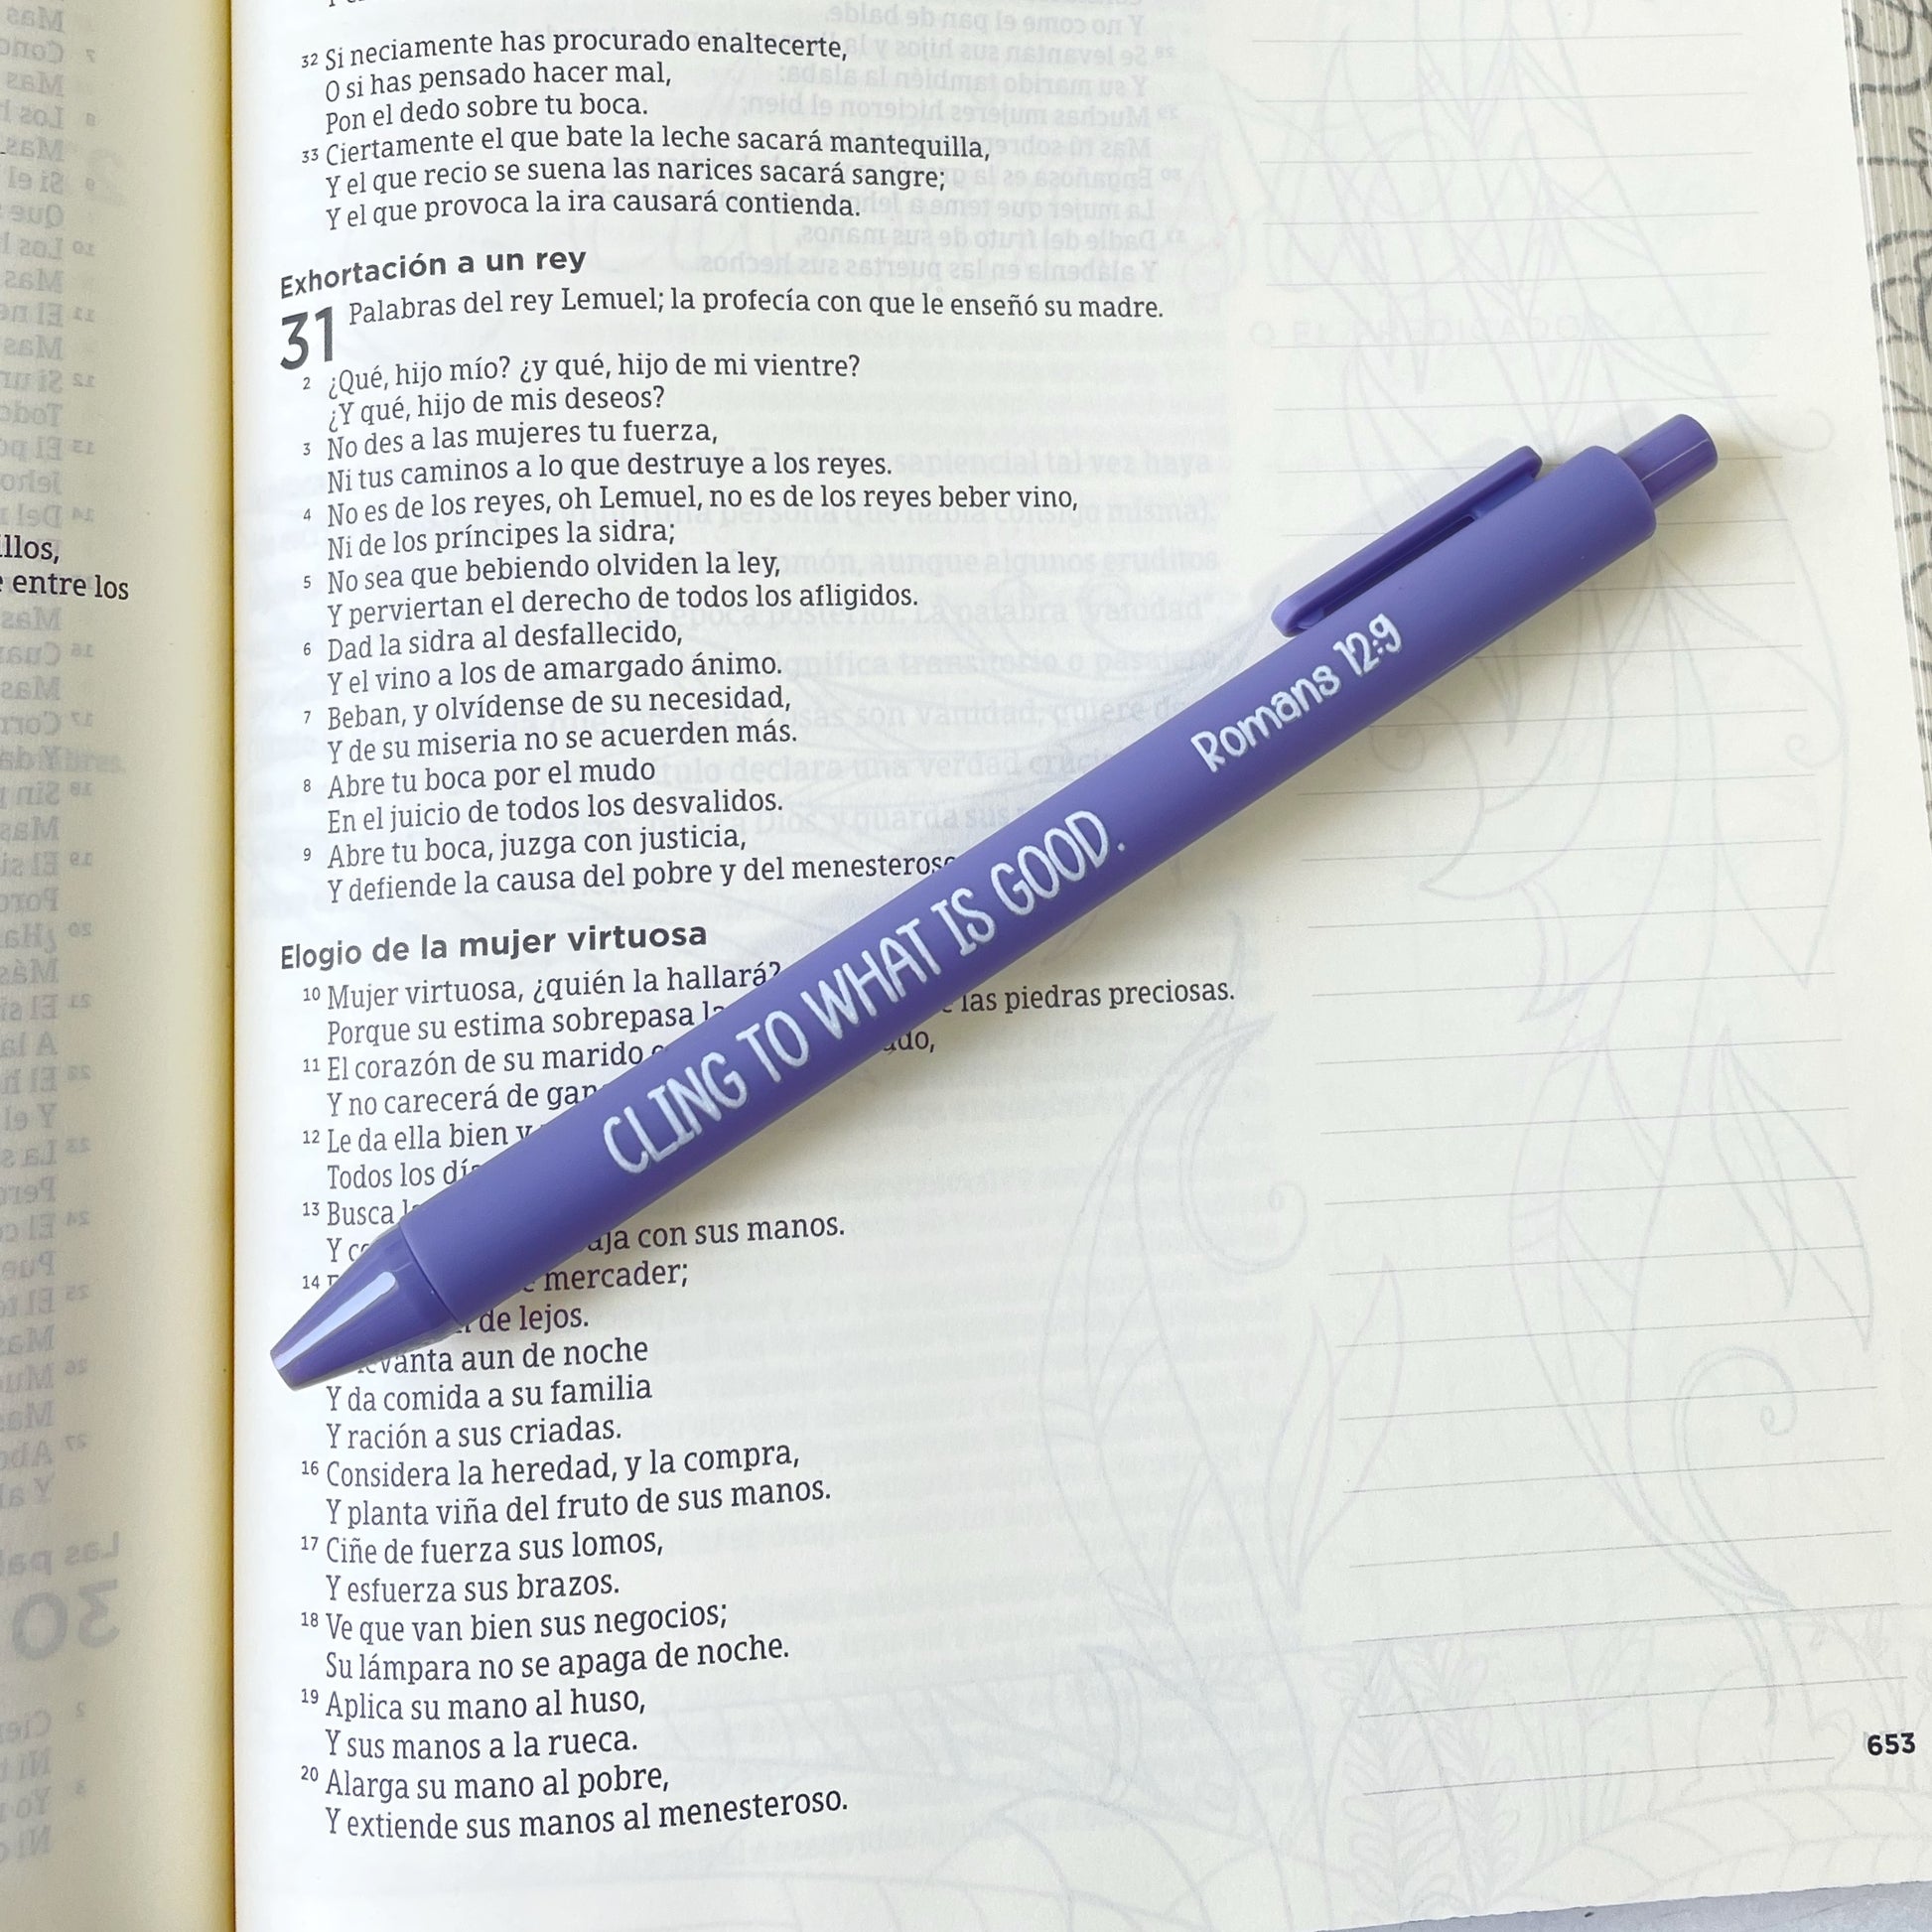 32 Si neciamente has procurado enaltecerte,
O si has pensado hacer mal,
Pon el dedo sobre tu boca.
33 Ciertamente el que bate la leche sacará mantequilla,
Y el que recio se suena las narices sacará sangre;
Y el que provoca la ira causará contienda.
Exhortación a un rey
31 Palabras del rey Lemuel; la profecía con que le enseñó su madre.
2 ¿Qué, hijo mío? ¿y qué, hijo de mi vientre?
¿Y qué, hijo de mis deseos?
3 No des a las mujeres tu fuerza,
Ni tus caminos a lo que destruye a los reyes.
4 No es de los reyes, oh Lemuel, no es de los reyes beber vino,
Ni de los príncipes la sidra;
5 No sea que bebiendo olviden la ley,
Y perviertan el derecho de todos los afligidos.
6 Dad la sidra al desfallecido,
Y el vino a los de amargado ánimo.
7 Beban, y olvídense de su necesidad,
Y de su miseria no se acuerden más.
8 Abre tu boca por el mudo
En el juicio de todos los desvalidos.
9 Abre tu boca, juzga con justicia,
Y defiende la causa del pobre y del
Elogio de la mujer virtuosa
10 Mujer virtuosa, ¿quién la hallará?
Porque su estima sobrepasa las piedras preciosas.
11 El corazón de su marido
Y no carecerá de
12 Le da ella bien y
Todos los
13 Busca
Y con sus manos.
14 mercader;
de lejos.
aun de noche
Y da comida a su familia
Y ración a sus criadas.
16 Considera la heredad, y la compra,
Y planta viña del fruto de sus manos.
17 Ciñe de fuerza sus lomos,
Y esfuerza sus brazos.
18 Ve que van bien sus negocios;
Su lámpara no se apaga de noche.
19 Aplica su mano al huso,
Y sus manos a la rueca.
20 Alarga su mano al pobre,
Y extiende sus manos al menesteroso.
653
CLING TO WHAT IS GOOD.
Romans 12:9
entre los